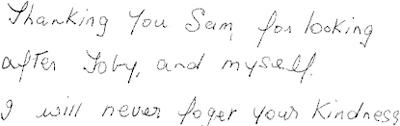 Thanking You Sam, for looking
after Toby, and myself.
I will never foger your Kindness